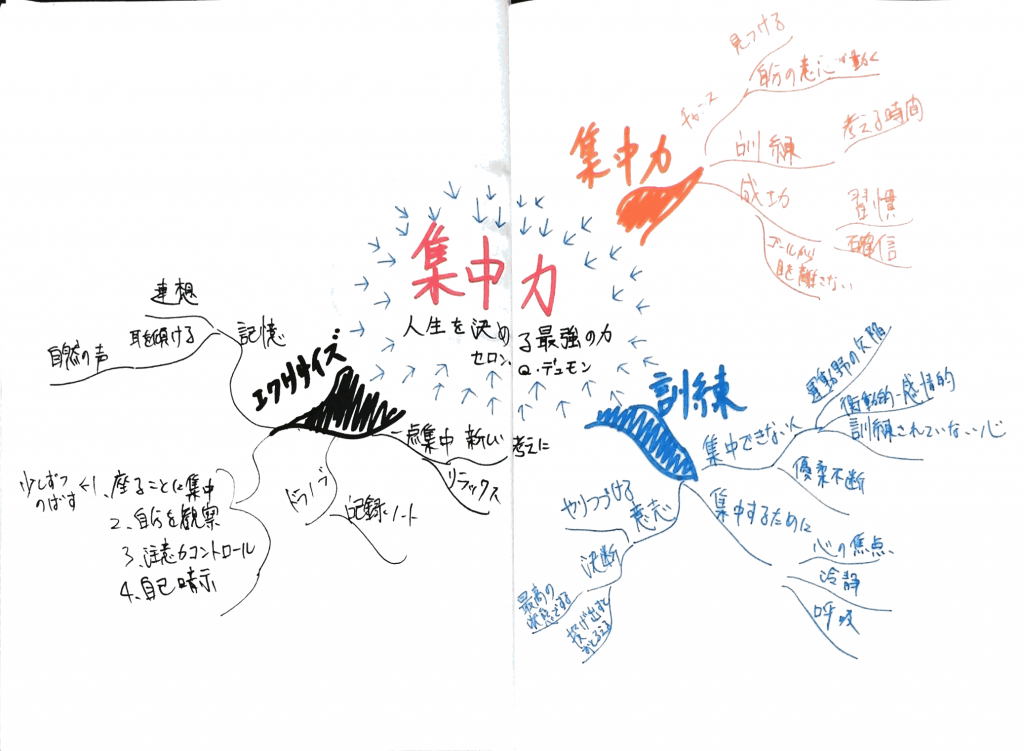 集中力
人生を決める最強の力
セロン.Q.デュモン
集中力
チャンス
見つける
自分の意志で動く
訓練
考える時間
成功
習慣
確信
ゴールから
目を離さない
訓練
集中できない人
運動野の欠陥
衝動的-感情的
訓練されていない心
優柔不断
集中するために
心の焦点
冷静
呼吸
意志
やりつづける
決断
最高の
状態でする
投げ出すと
おとろえる
エクササイズ…
記憶
連想
耳を傾ける
自然の声
一点集中 新しい考えに
リラックス
記録ノート
少しずつ
のばす
1、座ることに集中
2、自分を観察
3、注意力コントロール
4、自己暗示